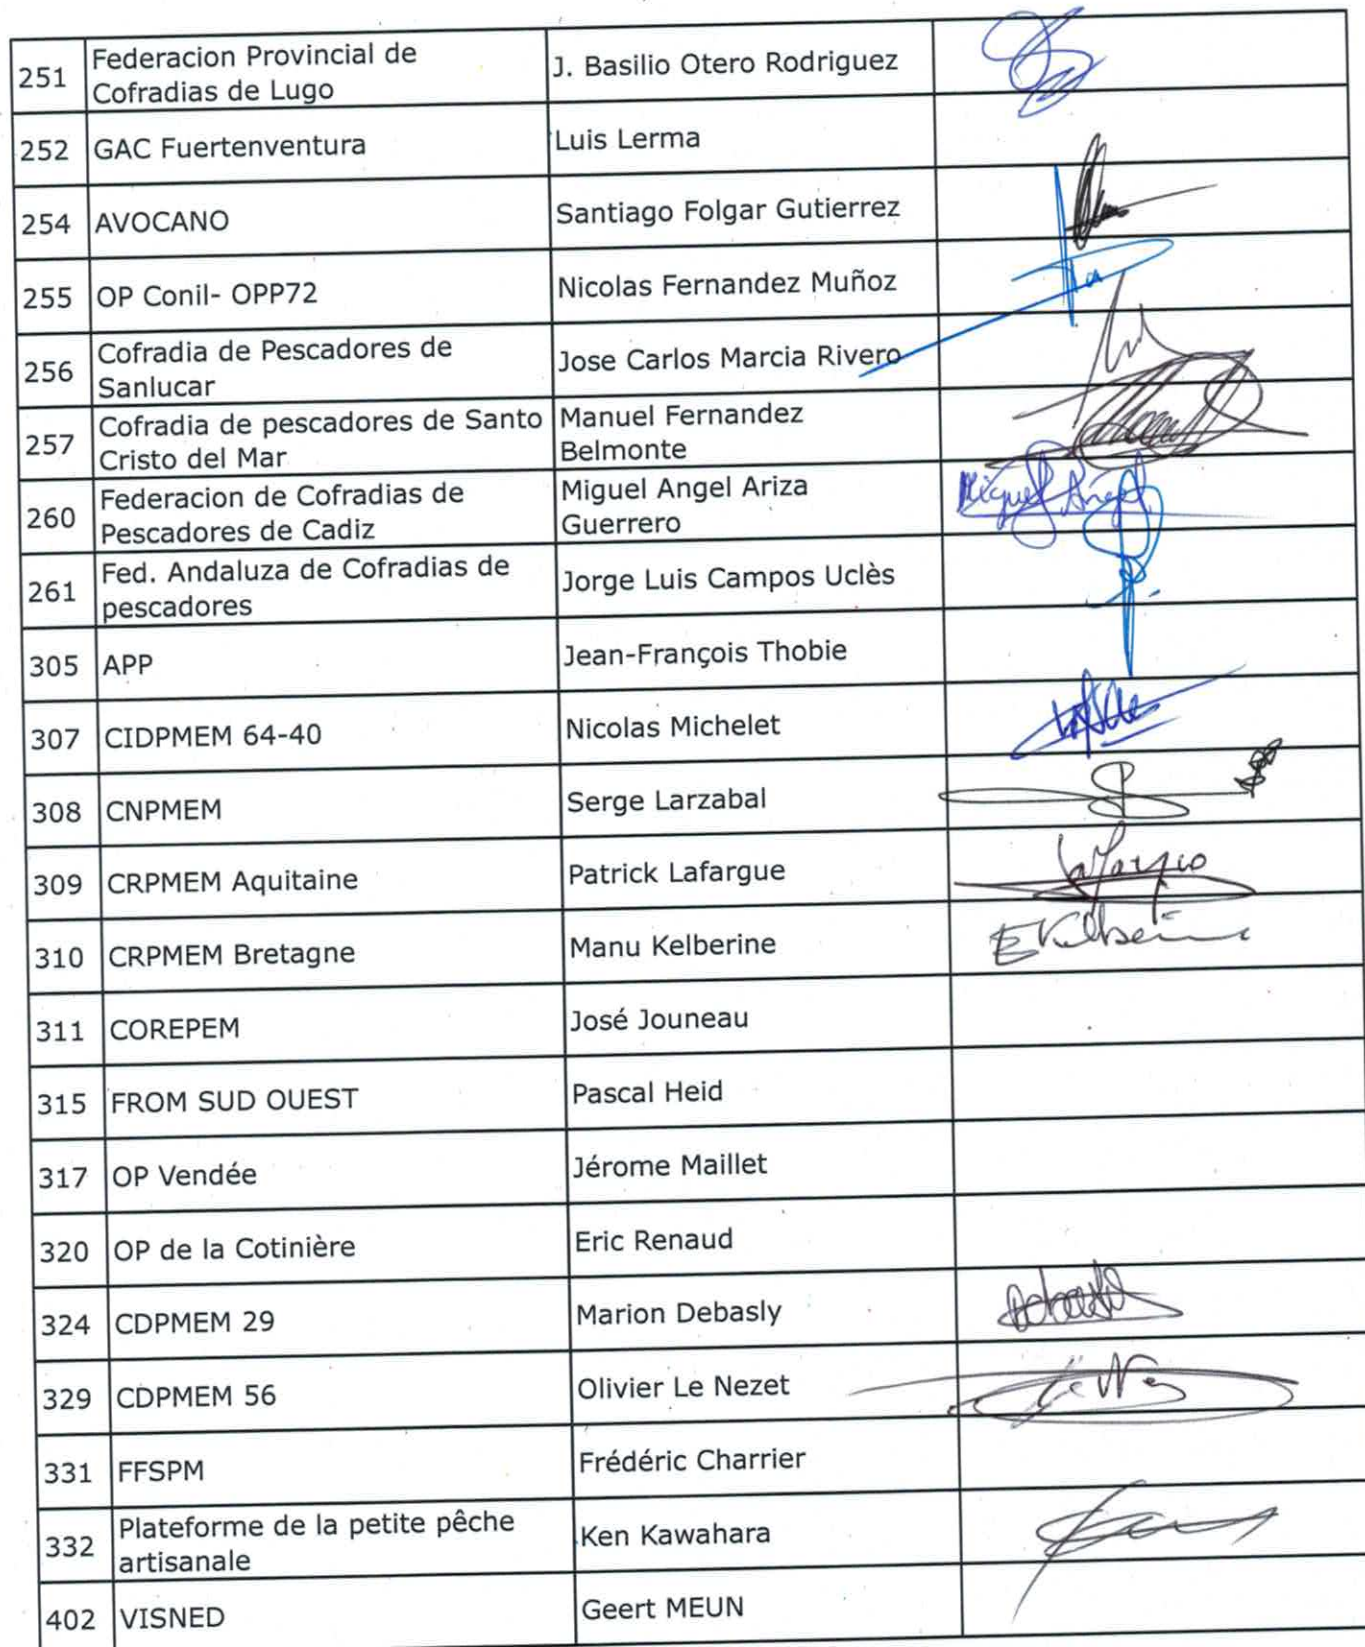 251 Federacion Provincial de
Cofradias de Lugo J. Basilio Otero Rodriguez
252 GAC Fuertenventura Luis Lerma
254 AVOCANO Santiago Folgar Gutierrez
255 OP Conil- OPP72 Nicolas Fernandez Muñoz
256 Cofradia de Pescadores de
Sanlucar Jose Carlos Marcia Rivero
257 Cofradia de pescadores de Santo
Cristo del Mar Manuel Fernandez
Belmonte
260 Federacion de Cofradias de
Pescadores de Cadiz Miguel Angel Ariza
Guerrero Miguel Angel
261 Fed. Andaluza de Cofradias de
pescadores Jorge Luis Campos Uclès
305 APP Jean-François Thobie
307 CIDPMEM 64-40 Nicolas Michelet
308 CNPMEM Serge Larzabal
309 CRPMEM Aquitaine Patrick Lafargue
310 CRPMEM Bretagne Manu Kelberine E Kelberine
311 COREPEM José Jouneau
315 FROM SUD OUEST Pascal Heid
317 OP Vendée Jérome Maillet
320 OP de la Cotinière Eric Renaud
324 CDPMEM 29 Marion Debasly
329 CDPMEM 56 Olivier Le Nezet
331 FFSPM Frédéric Charrier
332 Plateforme de la petite pêche
artisanale Ken Kawahara
402 VISNED Geert MEUN